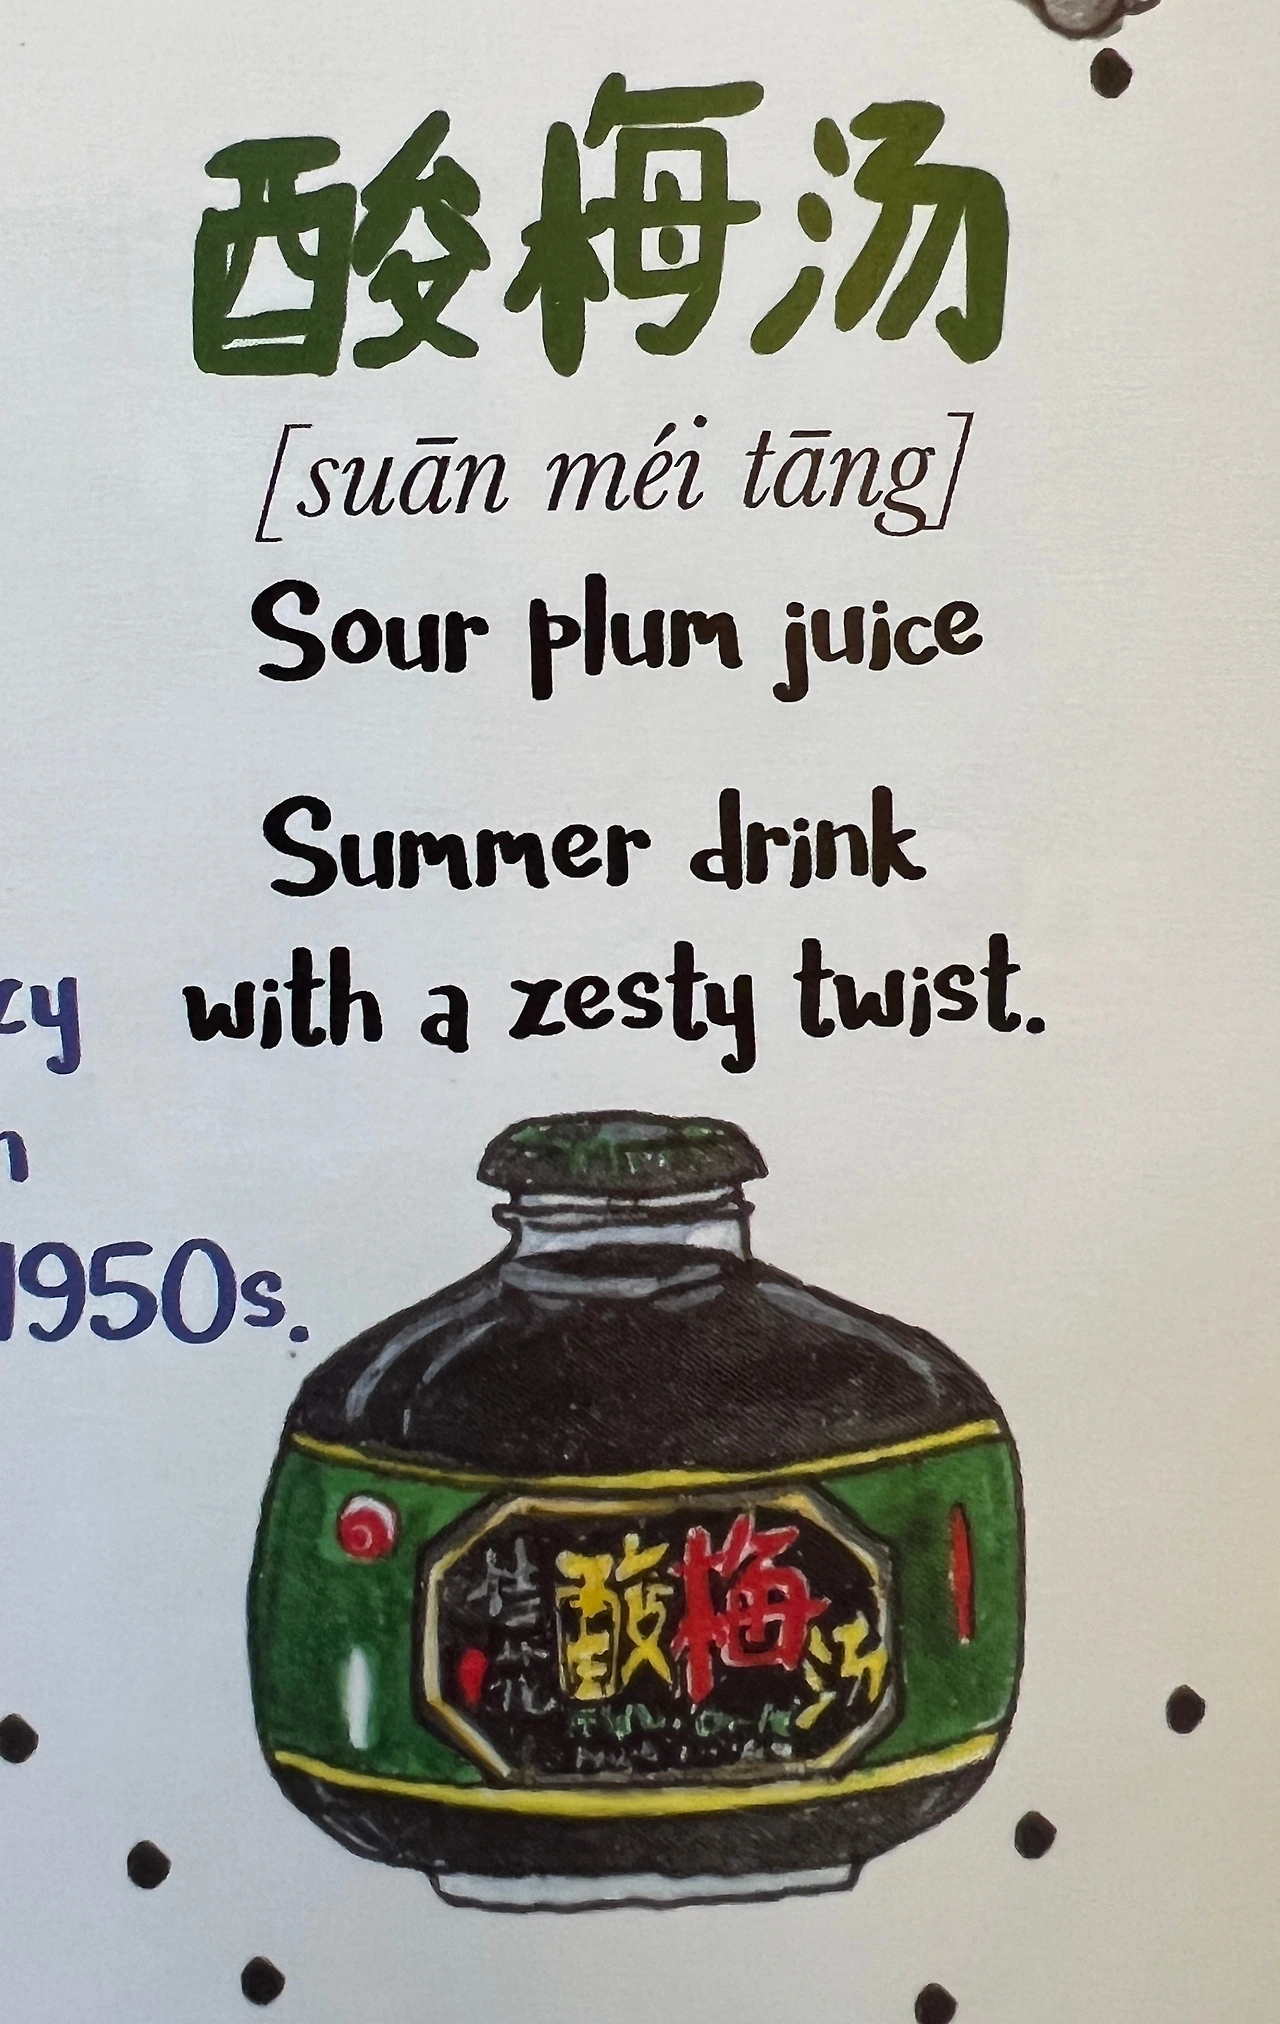 酸梅汤
[suān méi tāng]
Sour plum juice
Summer drink
with a zesty twist.
zy
n
1950s.
桂花
酸梅汤